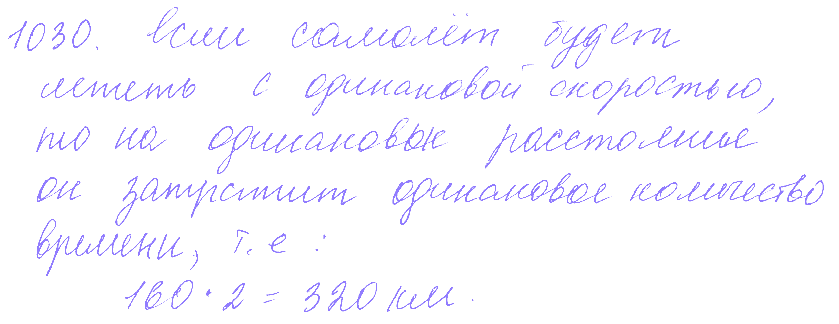 1030. Если самолёт будет
лететь с одинаковой скоростью,
то на одинаковое расстояние
он затратит одинаковое количество
времени, т.е :
160 · 2 = 320 км.